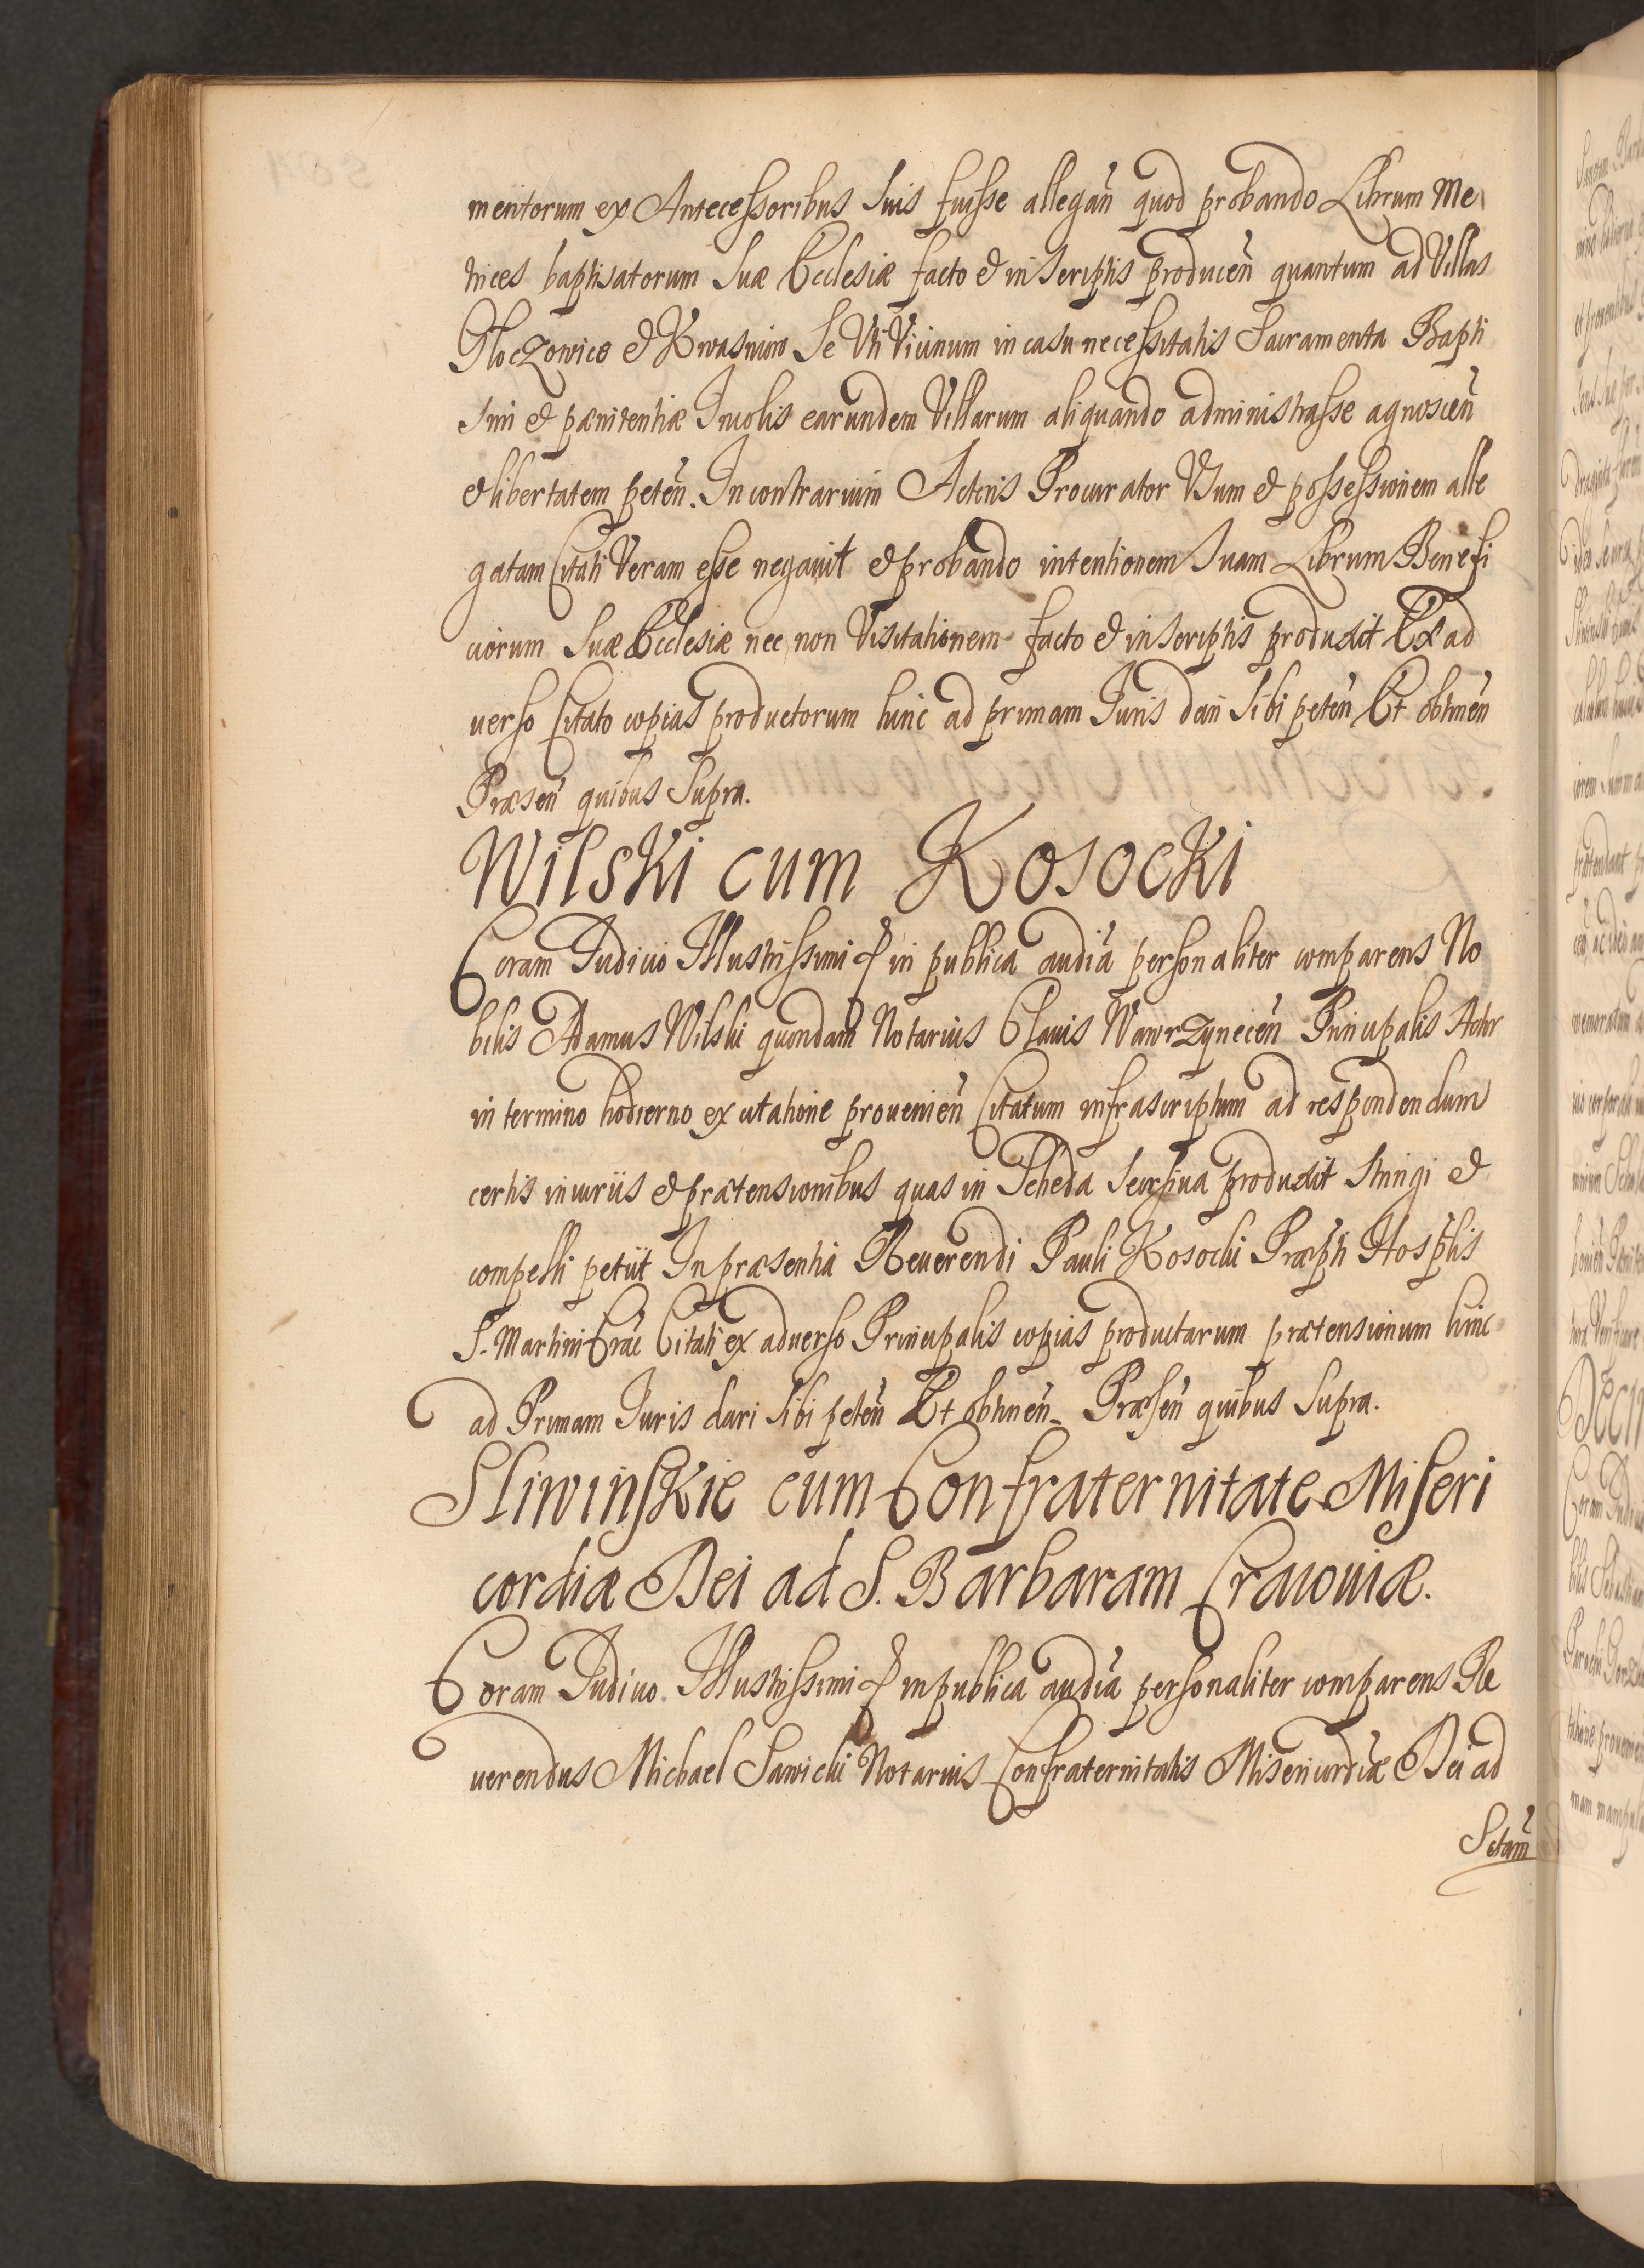 mentorum ex Antecessoribus Suis fuisse allegan̄ quod probando Librum Me
trices baptisatorum Suæ Ecclesiæ facto & in Scriptis producen̄ quantum ad Villas
Gloczowice & Kwasniow Se Uti Vicinum in casu necessitatis Sacramenta Bapti
smi & pænitentiæ Incolis earundem Villarum aliquando administrasse agnoscen̄
& libertatem peten̄. In contrarium Actoris Procurator Usum & possessionem alle
gatam Citati Veram esse negavit & probando intentionem Suam Librum Benefi
ciorum Suæ Ecclesiæ nec non Visitationem facto & in Scriptis produxit Ex ad
verso Citato copias productorum hinc ad primam Juris dari Sibi peten̄ Et obtinen̄
Præsen̄ quibus Supra.
Wilski cum Kosocki
Coram Judicio Illustrissimi & in publica audiā personaliter comparens No
bilis Adamus Wilski quondam Notarius Clavis Wawrzynecen̄ Principalis Actor
in termino hodierno ex citatione provenien̄ Citatum infrascriptum ad respondendum
certis iniuriis & prætensionibus quas in Scheda Seorsiva produxit Stringi &
compelli petiit In præsentia Reverendi Pauli Kosocki Præpti Hosptlis
S. Martini Crac̄ Citati ex adverso Principalis copias productarum prætensionum hinc
ad Primam Juris dari Sibi peten̄ Et obtinen̄ Præsen̄ quibus Supra.
Sliwinskie cum Confraternitate Miseri
cordiæ Dei ad S. Barbaram Cracoviæ.
Coram Judicio Illustrissimi & in publica audiā personaliter comparens Re
verendus Michael Sawicki Notarius Confraternitatis Misericordiæ Dei ad
Sctam̄